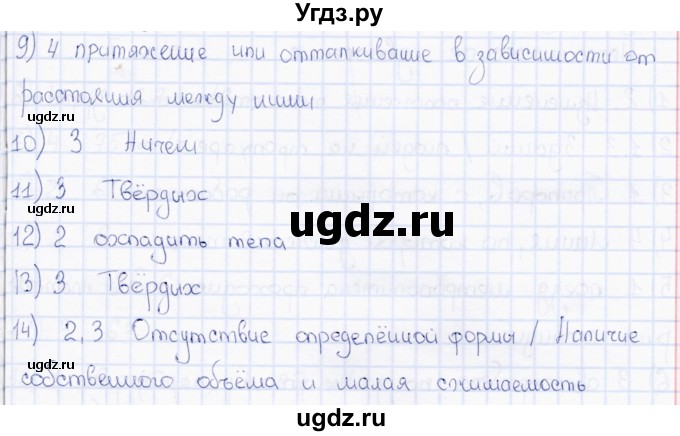 Угдз.ру
9) 4 притяжение или отталкивание в зависимости от
расстояния между ними
10) 3 Ничем
ugdz.ru
11) 3 Твёрдых
ugdz.ru
ugdz.ru
12) 2 охладить тела
13) 3 Твёрдых
ugdz.ru
14) 2,3 Отсутствие определённой формы / Наличие
собственного объёма и малая сжимаемость
ugdz.ru